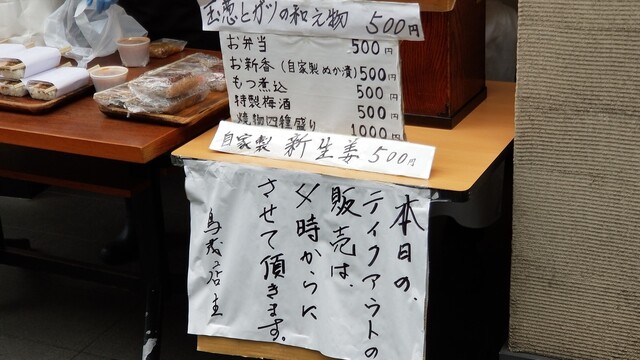 玉葱とガツの和え物 500円
お弁当 500円
お新香(自家製ぬか漬)500円
もつ煮込 500円
特製梅酒 500円
焼物四種盛り 1000円
自家製 新生姜 500円
本日の、
テイクアウトの
販売は、
夕時からに
させて頂きます。
鳥茂店主